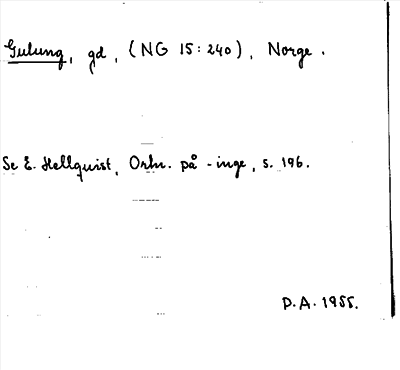 Gulung, gd, (NG 15:240), Norge.
Se E. Hellquist, Ortn. på -inge, s. 196.
D.A. 1955.